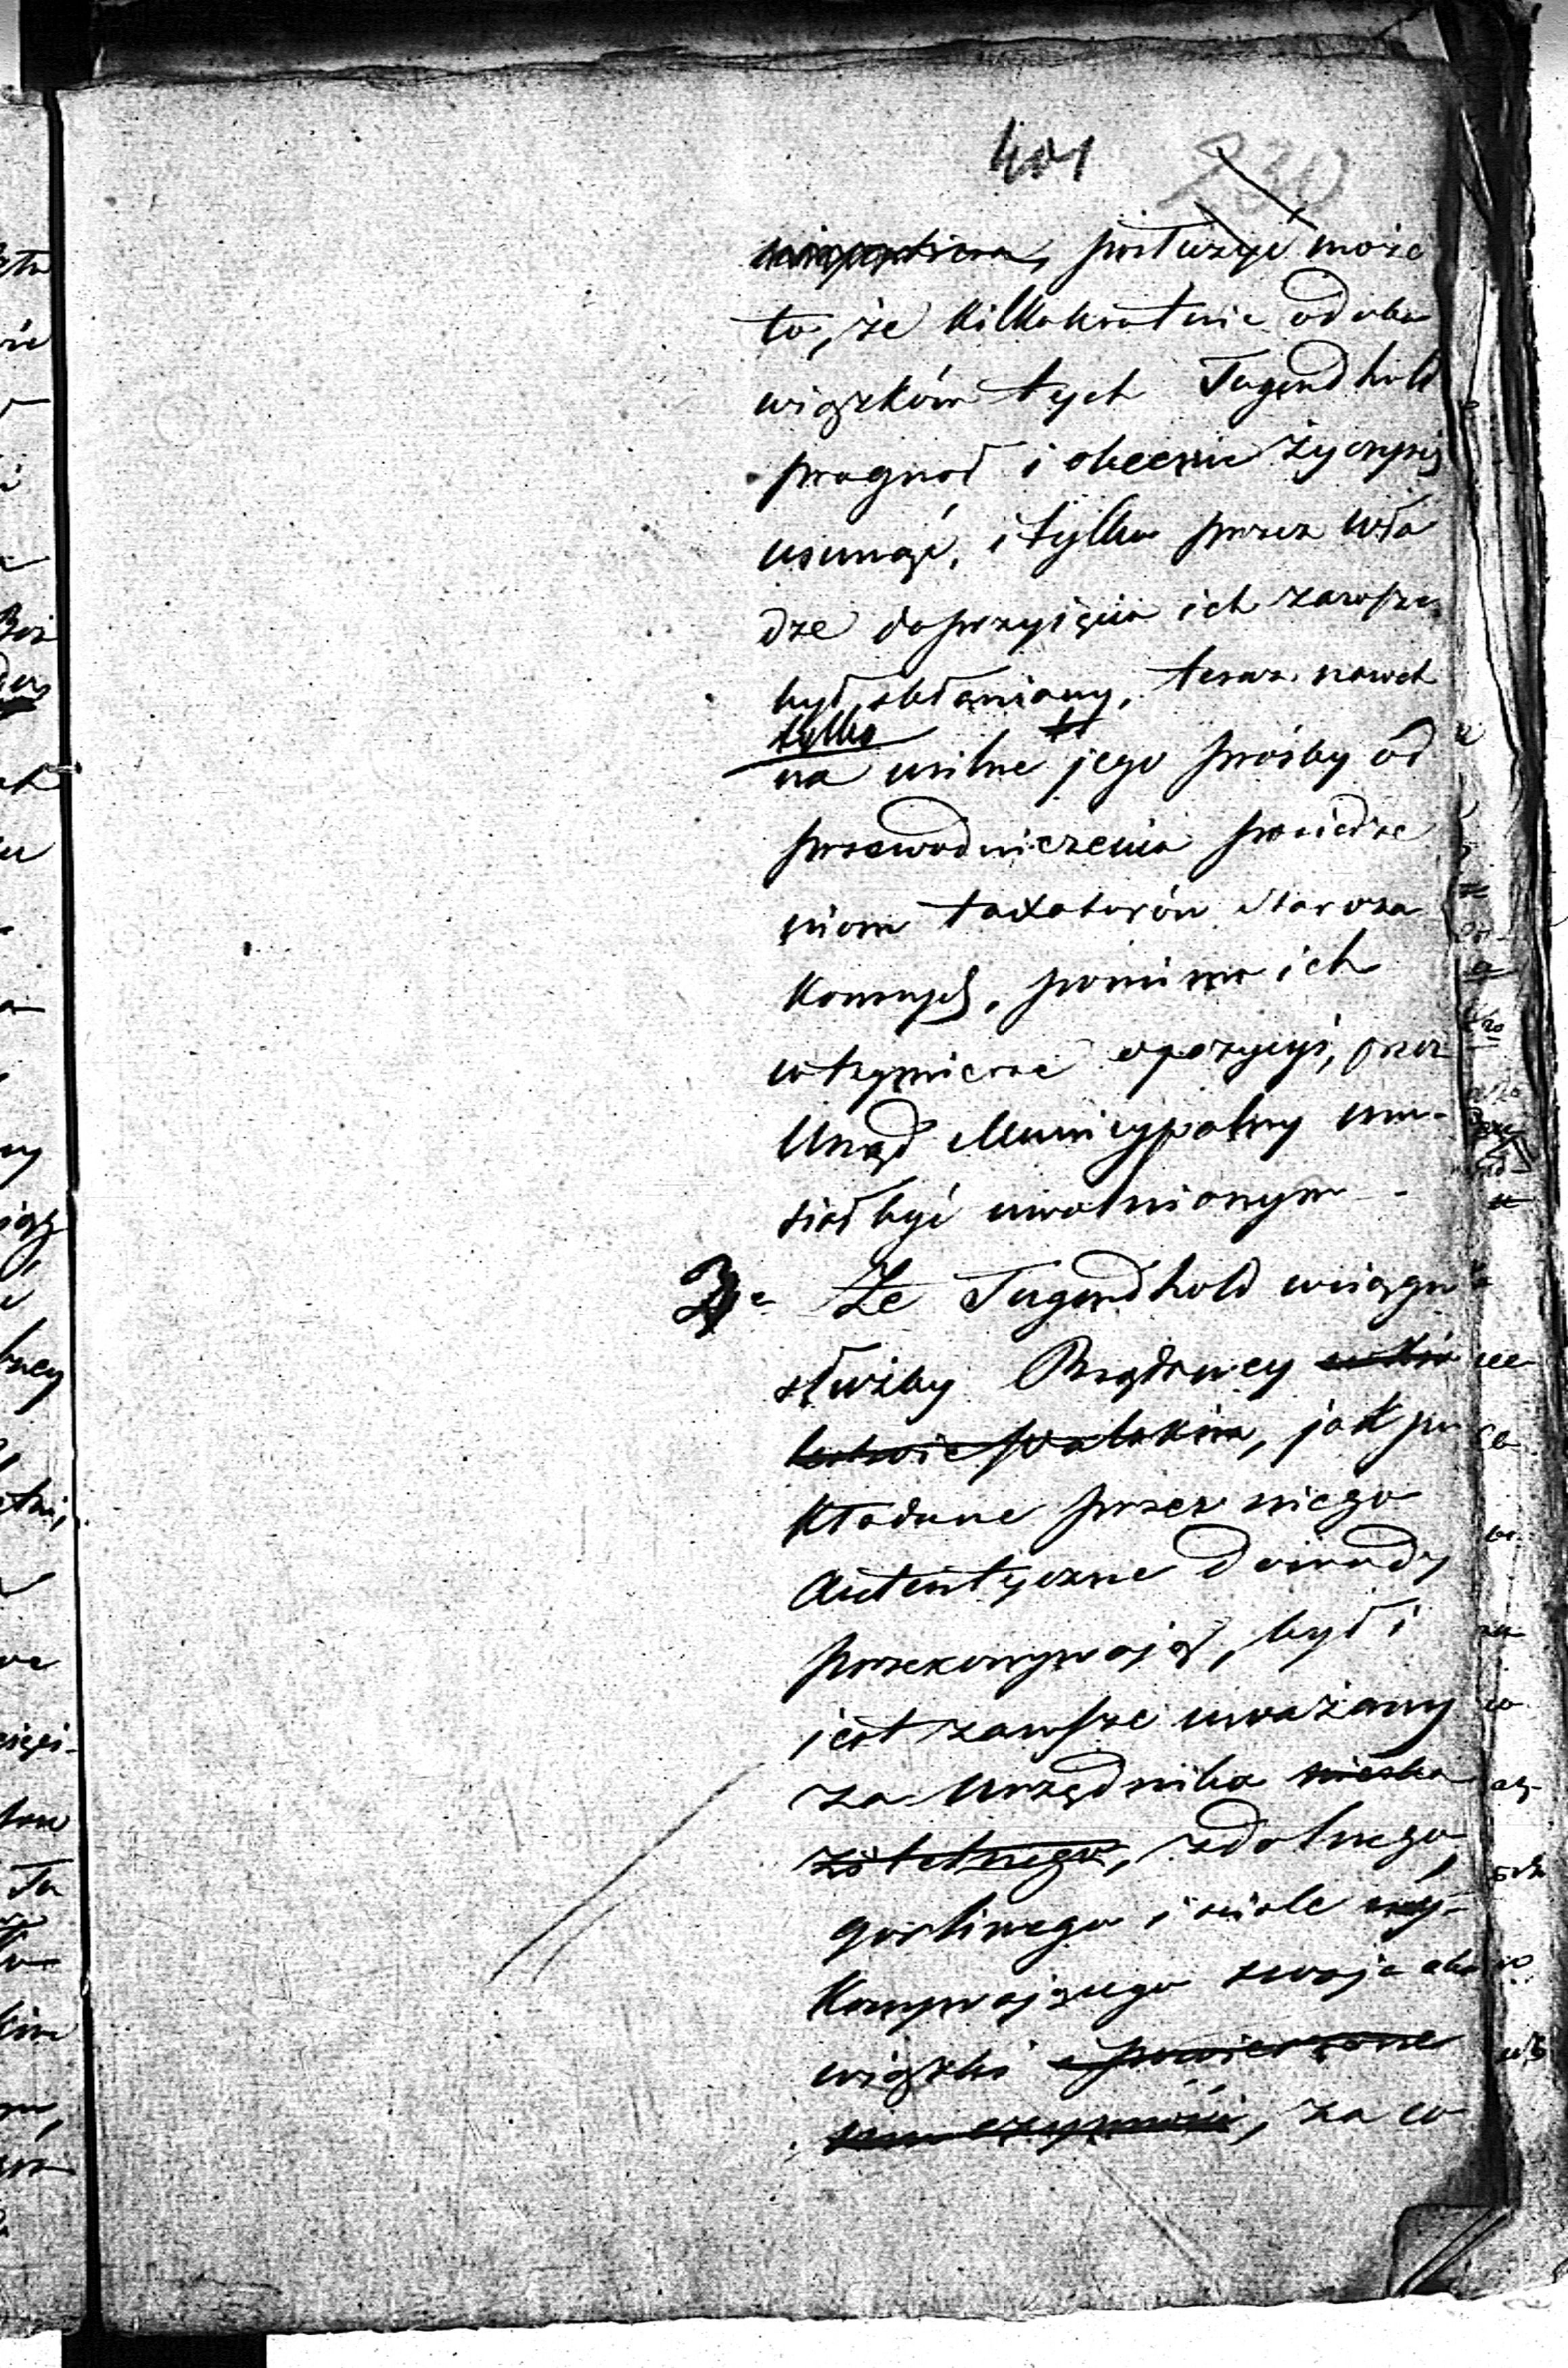 401 230
posłużyć może
to, że kilkakrotnie od obo
wiązków tych Tugendhold
pragnął i obecnie życzy się
usunąć, i tylko przez wła
dze do przyięcia ich zawsze
był skłaniany, teraz nawet
tylko
na usilne jego prośby od
przewodniczenia posiedze
niom taxatorów Staroza
konnych, pomimo ich
utrzymierze opozycyi, przez
Urząd Municypalny mu-
siał być uwolnionym -
że Tugendhold w ciągu
służby Rządowey
jak po
kładane przez niego
autentyczne dowody
przekonywają, był i
jest zawsze uważany
za Urzędnika nieska
zitelnego, zdolnego,
gorliwego i ściśle wy-
konywającego swoje obo
wiązki i powierzone
czynności, za co